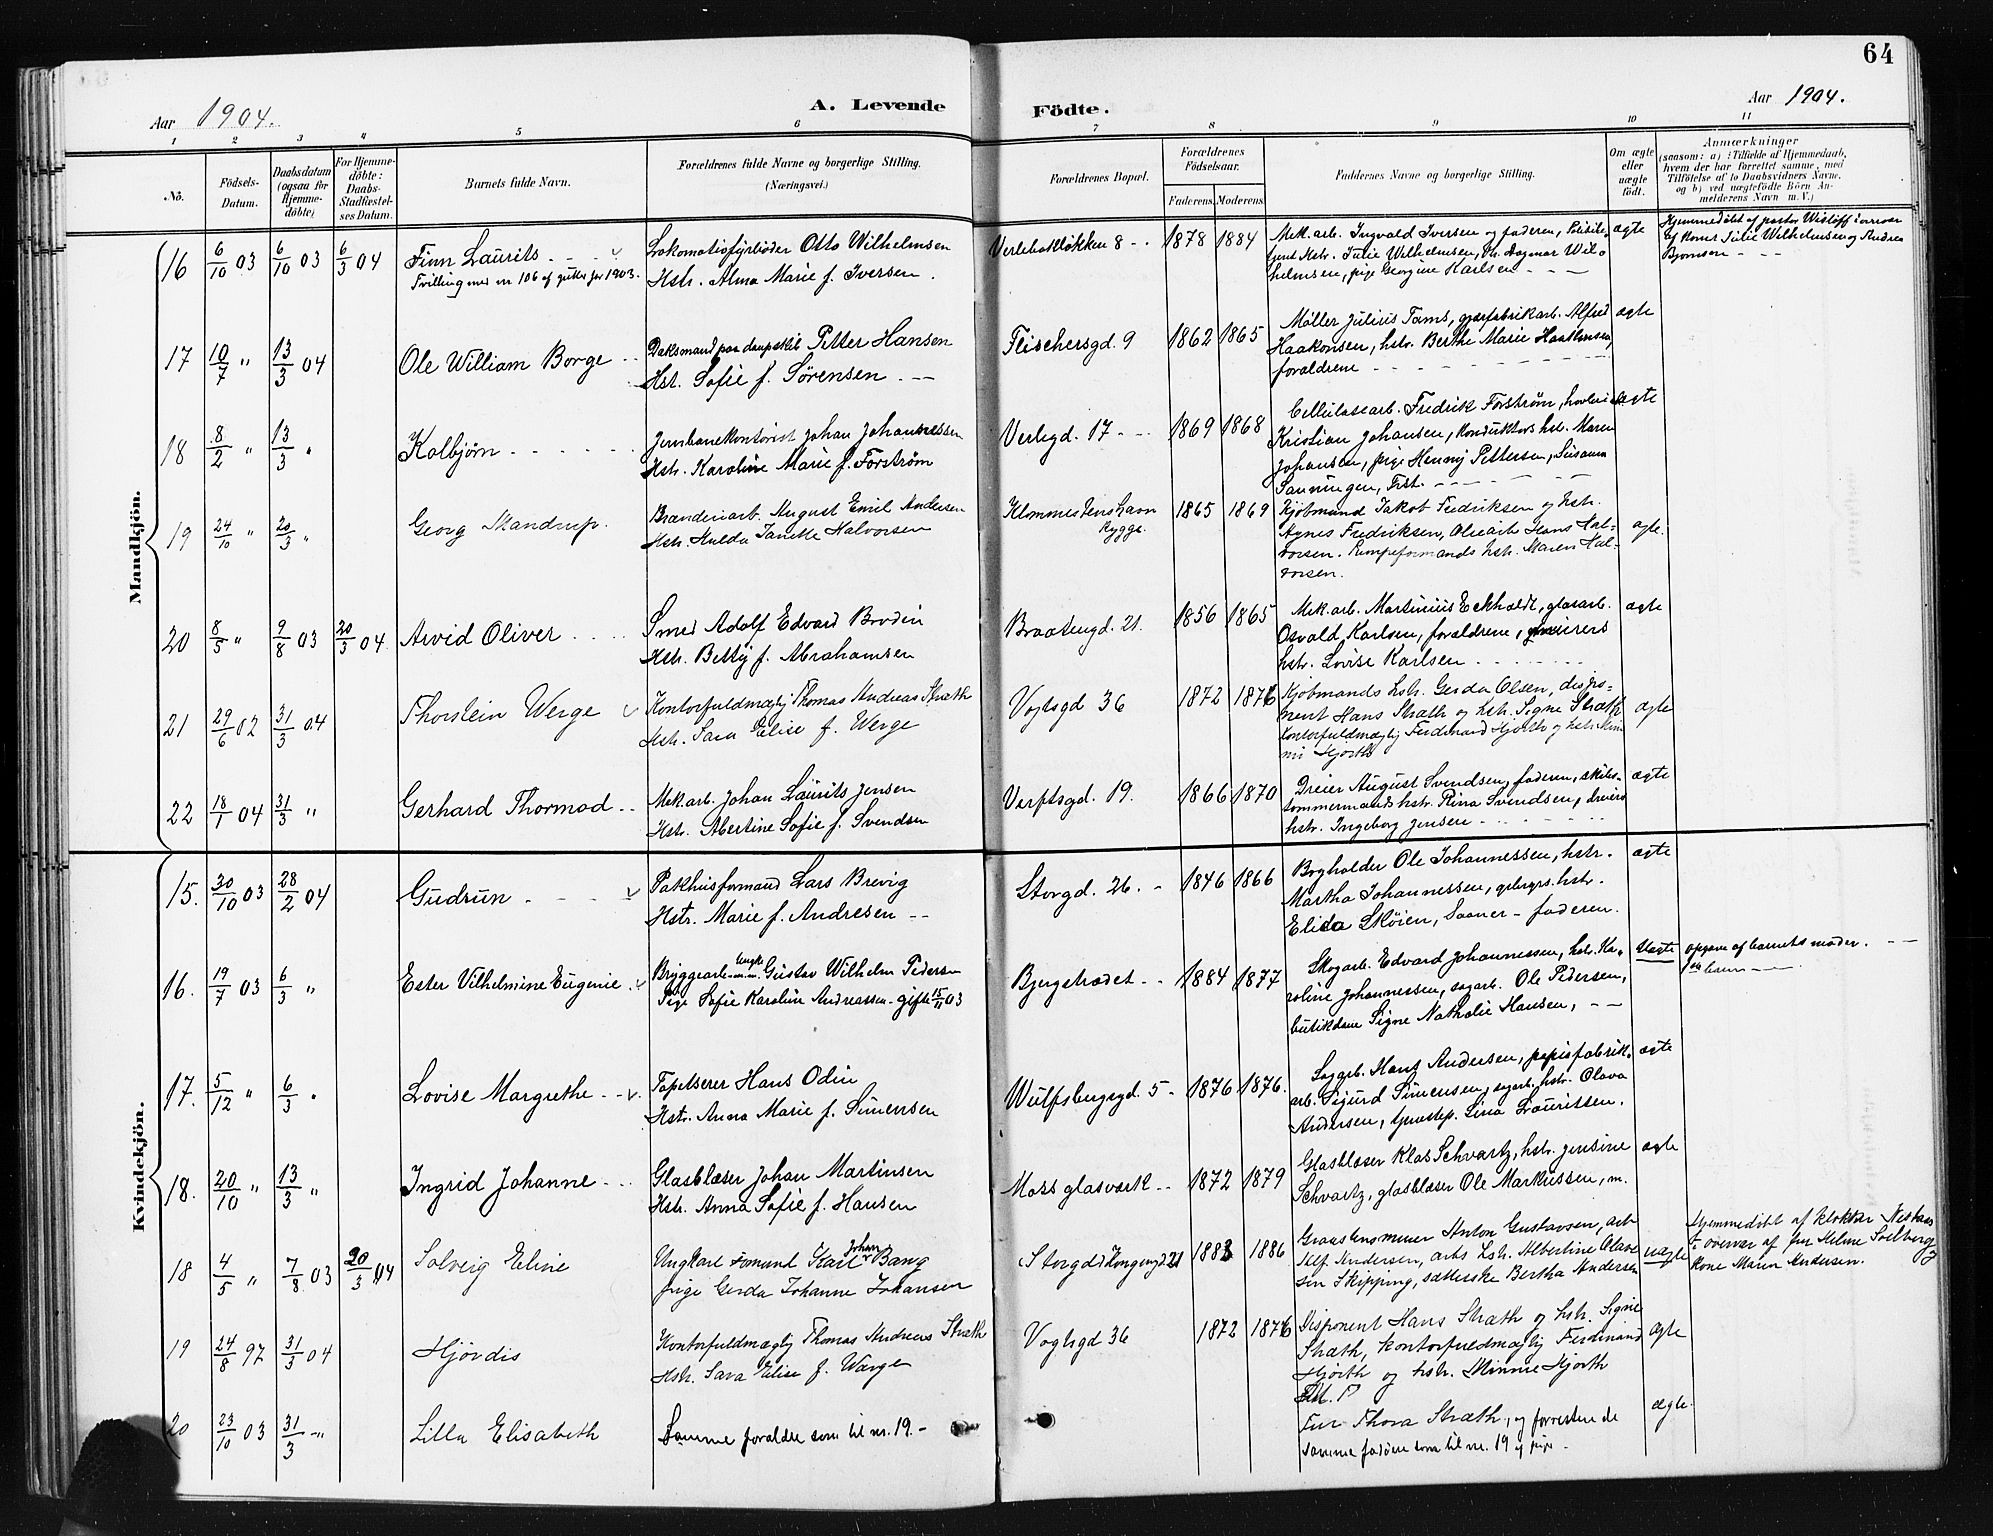 64
Aar 1904.
A. Levende
Födte.
Aar 1904.
1 2 3 4 5 6 7 8 9 10 11
No.
Födsels-
Datum.
Daabsdatum
(ogsaa for
Hjemme-
döbte)
For Hjemme-
döbte:
Daabs-
Stadfæstel-
ses Datum.
Barnets fulde Navn.
Forældrenes fulde Navne og borgerlige Stilling.
(Næringsvei.)
Forældrenes Bopæl.
Forældrenes
Födselsaar.
Faderens. Moderens.
Faddernes Navne og borgerlige Stilling.
Om ægte
eller
uægte
födt.
Anmærkninger
(saasom: a) i Tilfælde af Hjemmedaab,
hvem der har forrettet samme, med
Tilföielse af to Daabsvidners Navne,
og b) ved uægtefödte Börn An-
melderens Navn m. V.)
Mandkjön.
16 6/10 03 6/10 03 6/3 04
Finn Laurits
Tvilling med nr 106 af gutter for 1903.
Lokomotivfyrbøder Otto Wilhelmsen
Hstr. Alma Marie f. Iversen.
Verlebakløkken 8 1878 1884
Mek. arb. Ingvald Iversen og faderen,
Hstr. Julie Wilhelmsen, Dagmar Wil-
helmsen, pige Georgine Karlsen
ægte
Hjemmedöbt af pastor Wisløff i overvær
af Koner Julie Wilhelmsen og Andrea
Bjørnson
17 10/7 " 13/3 04
Ole William Borge
Dæksmand paa dampskib Petter Hansen
Hst. Sofie f. Sørensen
Fleischersgd. 9 1862 1865
Møller Julius Tams, gjærfabrikarb. Alfred
Haakonsen, hstr. Berthe Marie Haakonsen,
forældrene
ægte
18 8/2 " 13/3 "
Kolbjørn
Jernbanekontorist Johan Johannessen
Hstr. Karoline Marie f. Forstrøm
Verlsgd. 17 1869 1868
Cellulosearb. Fredrik Forstrøm,
Kristian Johansen, Konduktørs hst. Maren
Johansen, pige Henny Pettersen, Susanna
Sanningen, Frst.
ægte
19 24/10 " 20/3 "
Georg Skandrup.
Brænderiarb. August Emil Andersen
Hstr. Hulda Janette Halvorsen
Klommestenshavn
Rygge. 1865 1869
Kjøbmand Jakob Fredriksen og hst.
Agnes Fredriksen, Oliearb Hans Hal-
vorsen. hstr. Maren Hal-
vorsen.
ægte.
20 8/5 " 9/8 03 20/3 04
Arvid Oliver
Smed Adolf Edvard Brodin
Hstr. Betty f. Abrahamsen
Braatengd. 21. 1856 1865
Mek. arb. Martinius Eckholdt, glasarb.
Osvald Karlsen, forældrene, murers
hstr. Lovise Karlsen
ægte
21 29/6 02 31/3 04
Thorstein Werge
Kontorfuldmægtig Thomas Andreas Stræth
Hstr. Sara Elise f. Werge
Vogtsgd 36 1872 1876
Kjøbmands hstr. Gerda Olsen, dispo-
nent Hans Stræth og hstr. Signe Stræth
kontorfuldmægtig Ferdinand Hjorth og hstr. Min
ni Hjorth
ægte
22 18/1 04 31/3 "
Gerhard Thormod
Mek. arb. Johan Laurits Jensen
Hstr. Abertine Sofie f. Svendsen
Verftsgd. 19. 1866 1870
Dreier August Svendsen, faderen, skibs-
tømmermands hstr. Rina Svendsen, dreiers
hstr. Ingeborg Jensen
ægte
Kvindekjön.
15. 30/10 03 28/2 04
Gudrun
Pakhusformand Lars Brevig
Hstr. Marie f. Andresen
Storgd. 26. 1846 1866
Bogholder Ole Johannessen, hstr.
Martha Johannessen, gbrgrs. hstr.
Elida Skøien, Saaner - faderen.
ægte
16. 19/7 03 6/3 "
Ester Vilhelmine Eugenie
Bryggearb. ungk. Gustav Wilhelm Pedersen
Pige Sofie Karoline Andreassen - gifte 15/11 03
Bjergstrædet 1884 1877
Skogarb. Edvard Johannessen, hst. Ka-
roline Johannessen, sagarb. Ole Pedersen,
butikdame Signe Nathalie Hansen,
uægte
opgave af barnets moder.
1ste barn
17. 5/12 " 6/3 "
Lovise Margrethe
Tapetserer Hans Odin
Hstr. Anna Marie f. Simensen
Wulfsbergsgd. 5 1876 1876.
Sagarb. Hans Andersen, papirfabrik-
arb. Sigurd Simensen, sagarb. hstr. Olava
Andersen, tjenestep. Lina Lauritsen.
ægte
18. 20/10 " 13/3 "
Ingrid Johanne
Glasblæser Johan Martinsen
Hstr. Anna Sofie f. Hansen
Moss glasværk 1872 1879
Glasblæser Klas Schvartz, hstr. Jensine
Schvartz, glasblæser Ole Markussen, m.
ægte
18 4/5 " 7/8 03 20/3 04
Solveig Eline
Ungkarl sømand Karl Johan Bang
pige Gerda Johanne Johansen
Storgd. 1883 1886
Graastensminer Anton Gustavsen, arb
Alf Andersen, arbs hstr. Albertine Olave
sen Skipping, sætterske Bertha Andersen
uægte
Hjemmedöbt af klokker
i overvær af fru Helene Solberg og
Kone Maren Andersen.
19 24/8 97 31/3 04
Hjørdis
Kontorfuldmægtig Thomas Andreas Stræth
Hstr. Sara Elise f. Wærge
Vogtsgd 36 1872 1876
Disponent Hans Stræth og hstr. Signe
Stræth, kontorfuldmægtig Ferdinand
Hjorth og hstr. Minnie Hjorth
ægte
20 23/10 03 31/3 "
Lilla Elisabeth
Samme forældre som til nr. 19.
Fru Thora Stræth, og forrestene de
samme faddere som til nr. 19 og pige
ægte.